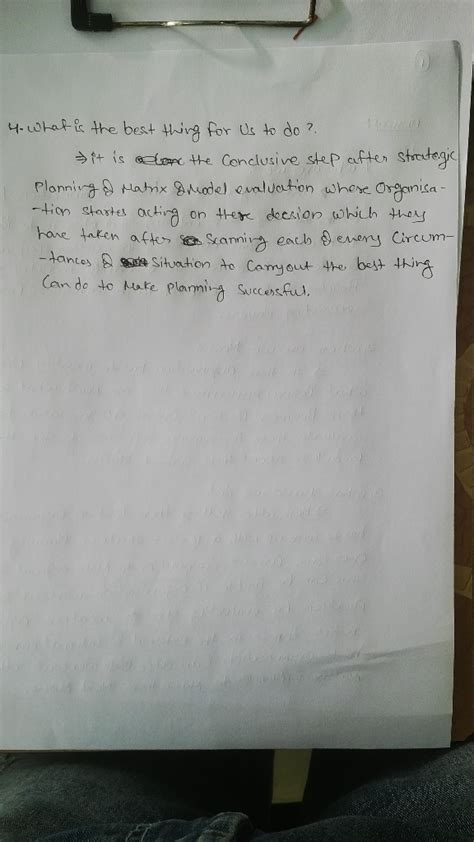 4. What is the best thing for Us to do?.
⇒ it is the Conclusive step after strategic
Planning & Matrix & Model evaluation where Organisa-
-tion startes acting on there decsion which they
have taken after Scanning each & every Circum-
-tances & Situation to Carryout the best thing
Can do to Make Planning Successful.